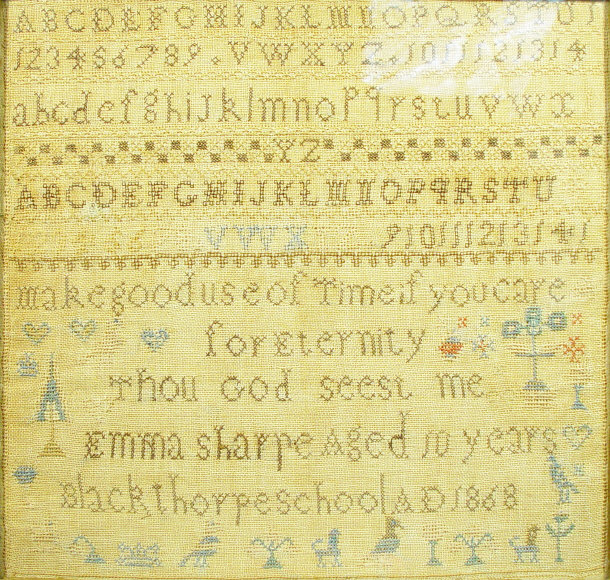 ABCDEFGHIJKLMNOPQRSTU
123456789.VWXYZ.10111121314
abcdefghijklmnopqrstuvwx
YZ
ABCDEFGHIJKLMNOPQRSTU
VWX 91011121314
make good use of Time if you care
for Eternity
Thou God seest me
Emma sharpe Aged 10 years
Blackthorpe school AD 1868